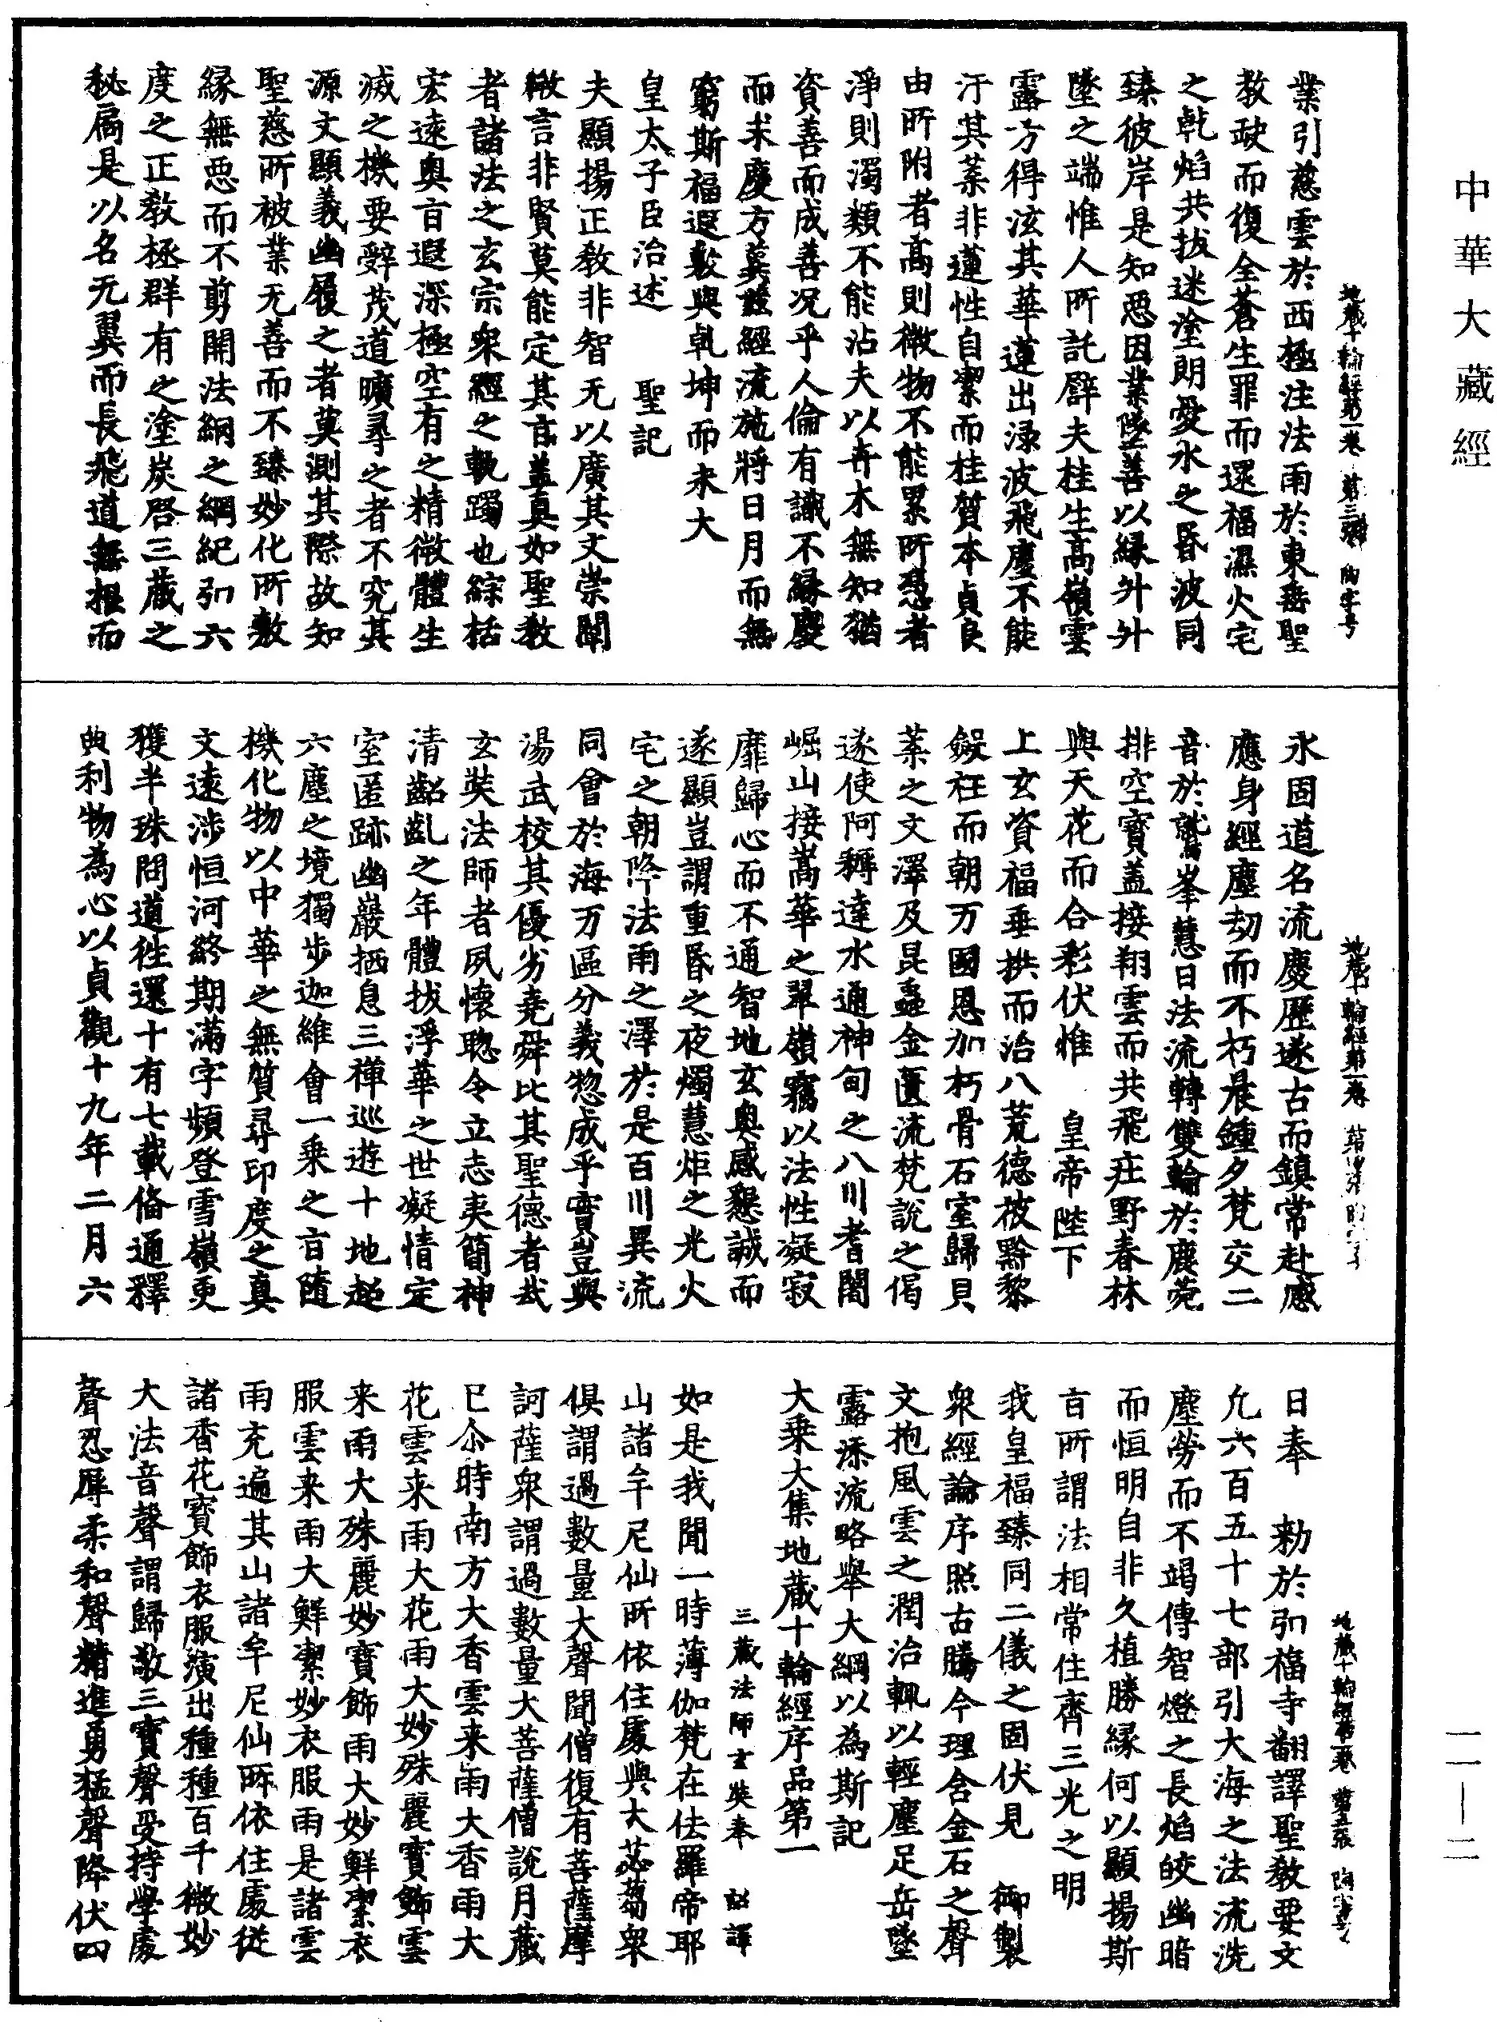 中華大藏經
一一—二
地藏十輪經第一卷 第三張 陶字号
業引慈雲於西極注法雨於東垂聖
教歧而復全蒼生罪而還福濕火宅
之乾焰共拔迷塗朗愛水之昏波同
臻彼岸是知惡因業墜善以緣升升
墜之端惟人所託譬夫桂生高嶺雲
露方得泫其華蓮出渌波飛塵不能
汙其葉非蓮性自潔而桂質本貞良
由所附者高則微物不能累所憑者
淨則濁類不能沾夫以卉木無知猶
資善而成善況乎人倫有識不緣慶
而求慶方冀茲經流施將日月而無
窮斯福遐敷與乹坤而永大
皇太子臣治述 聖記
夫顯揚正教非智无以廣其文崇闡
微言非賢莫能定其言盖真如聖教
者諸法之玄宗衆經之軌躅也綜括
宏遠奥旨遐深極空有之精微體生
滅之機要辭茂道曠尋之者不究其
源文顯義幽履之者莫測其際故知
聖慈所被業无善而不臻妙化所敷
緣無惡而不剪開法綱之綱紀弘六
度之正教拯群有之塗炭啓三藏之
秘扃是以名无翼而長飛道無根而
地藏十輪經第一卷 第四張
永固道名流慶歷遂古而鎮常赴感
應身經塵劫而不朽晨鍾夕梵交二
音於鷲峯慧日法流轉雙輪於鹿菀
排空寶盖接翔雲而共飛庄野春林
與天花而合彩伏惟 皇帝陛下
上玄資福垂拱而治八荒德被黔黎
斂衽而朝万國恩加朽骨石室歸貝
葉之文澤及昆蟲金匱流梵說之偈
遂使阿耨達水通神甸之八川耆闍
崛山接嵩華之翠嶺竊以法性凝寂
靡歸心而不通智地玄奥感懇誠而
遂顯豈謂重昏之夜燭慧炬之光火
宅之朝降法雨之澤於是百川異流
同會於海万區分義揔成乎實豈與
湯武校其優劣堯舜比其聖德者哉
玄奘法師者夙懷聦令立志夷簡神
清齠齓之年體拔浮華之世凝情定
室匿跡幽巖栖息三禪巡遊十地超
六塵之境獨步迦維會一乘之旨随
機化物以中華之無質尋印度之真
文遠涉恒河終期滿字頻登雪嶺更
獲半珠問道往還十有七載俻通釋
典利物為心以貞觀十九年二月六
地藏十輪經第一卷 第五張 陶字号
日奉 勅於弘福寺翻譯聖教要文
凢六百五十七部引大海之法流洗
塵勞而不竭傳智燈之長焰皎幽暗
而恒明自非久植勝緣何以顯揚斯
旨所謂法相常住齊三光之明
我皇福臻同二儀之固伏見 御製
衆經論序照古騰今理含金石之聲
文抱風雲之潤治輒以輕塵足岳墜
露添流略舉大綱以為斯記
大乘大集地藏十輪經序品第一
三藏法師玄奘奉 詔譯
如是我聞一時薄伽梵在佉羅帝耶
山諸牟尼仙所依住處與大苾蒭衆
俱謂過數量大聲聞僧復有菩薩摩
訶薩衆謂過數量大菩薩僧說月藏
已尒時南方大香雲来雨大香雨大
花雲来雨大花雨大妙殊麗寶飾雲
来雨大殊麗妙寶飾雨大妙鮮潔衣
服雲来雨大鮮潔妙衣服雨是諸雲
雨充遍其山諸牟尼仙所依住處從
諸香花寶飾衣服演出種種百千微妙
大法音聲謂歸敬三寶聲受持學處
聲忍辱柔和聲精進勇猛聲降伏四